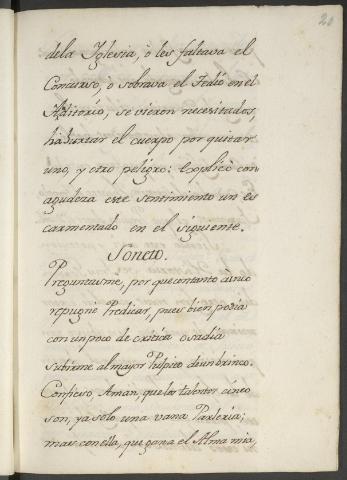 20
dela Iglesia, ò les faltava el
Concurso, ó sobrava el Tedio en el
Auditorio, se vieron necesitados,
hà hurtar el cuerpo por quitar
uno, y otro peligro: Explicò con
agudeza este sentimiento un es
carmentado en el siguiente.
Soneto.
Preguntasme, por que con tanto
repugnè Predicar, pues bien podia
con un poco de critica osadía
subirme al mayor Pulpito de un brinco.
Confieso, Aman, que los talentos cinco
son, ya solo una vana Parleria;
mas con ella, que gana el Alma mia,